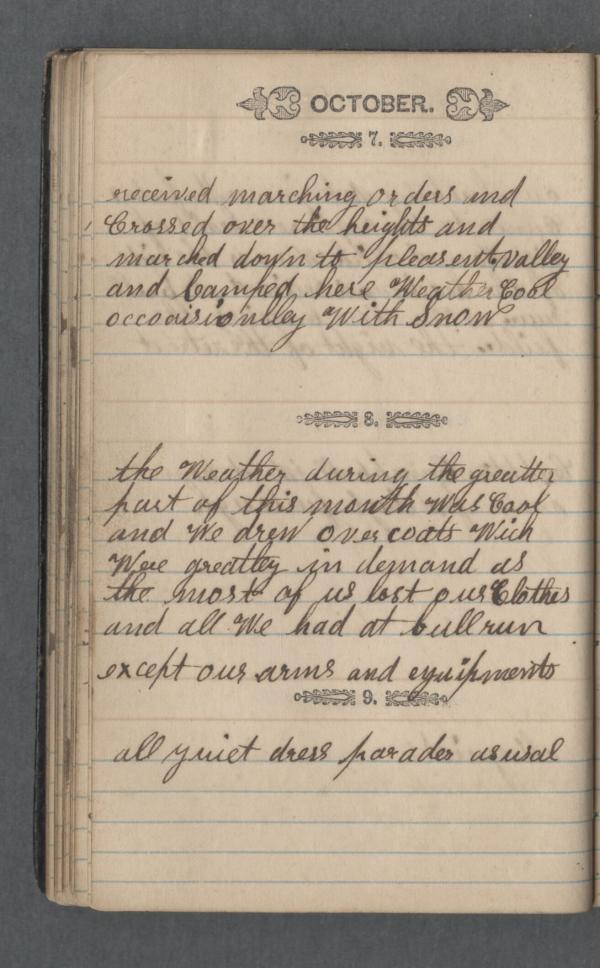 OCTOBER.
7.
received marching orders and
Crossed over the heights and
marched down to pleasent valley
and Camped here Weather Cool
occoaisionlley With Snow
8.
the Weather during the greatter
part of this month Was Cool
and We drew over coats Wich
Were greatley in demand as
the most of us lost our Clothes
and all We had at bull run
except our arms and equipments
9.
all quiet dress parades as usal